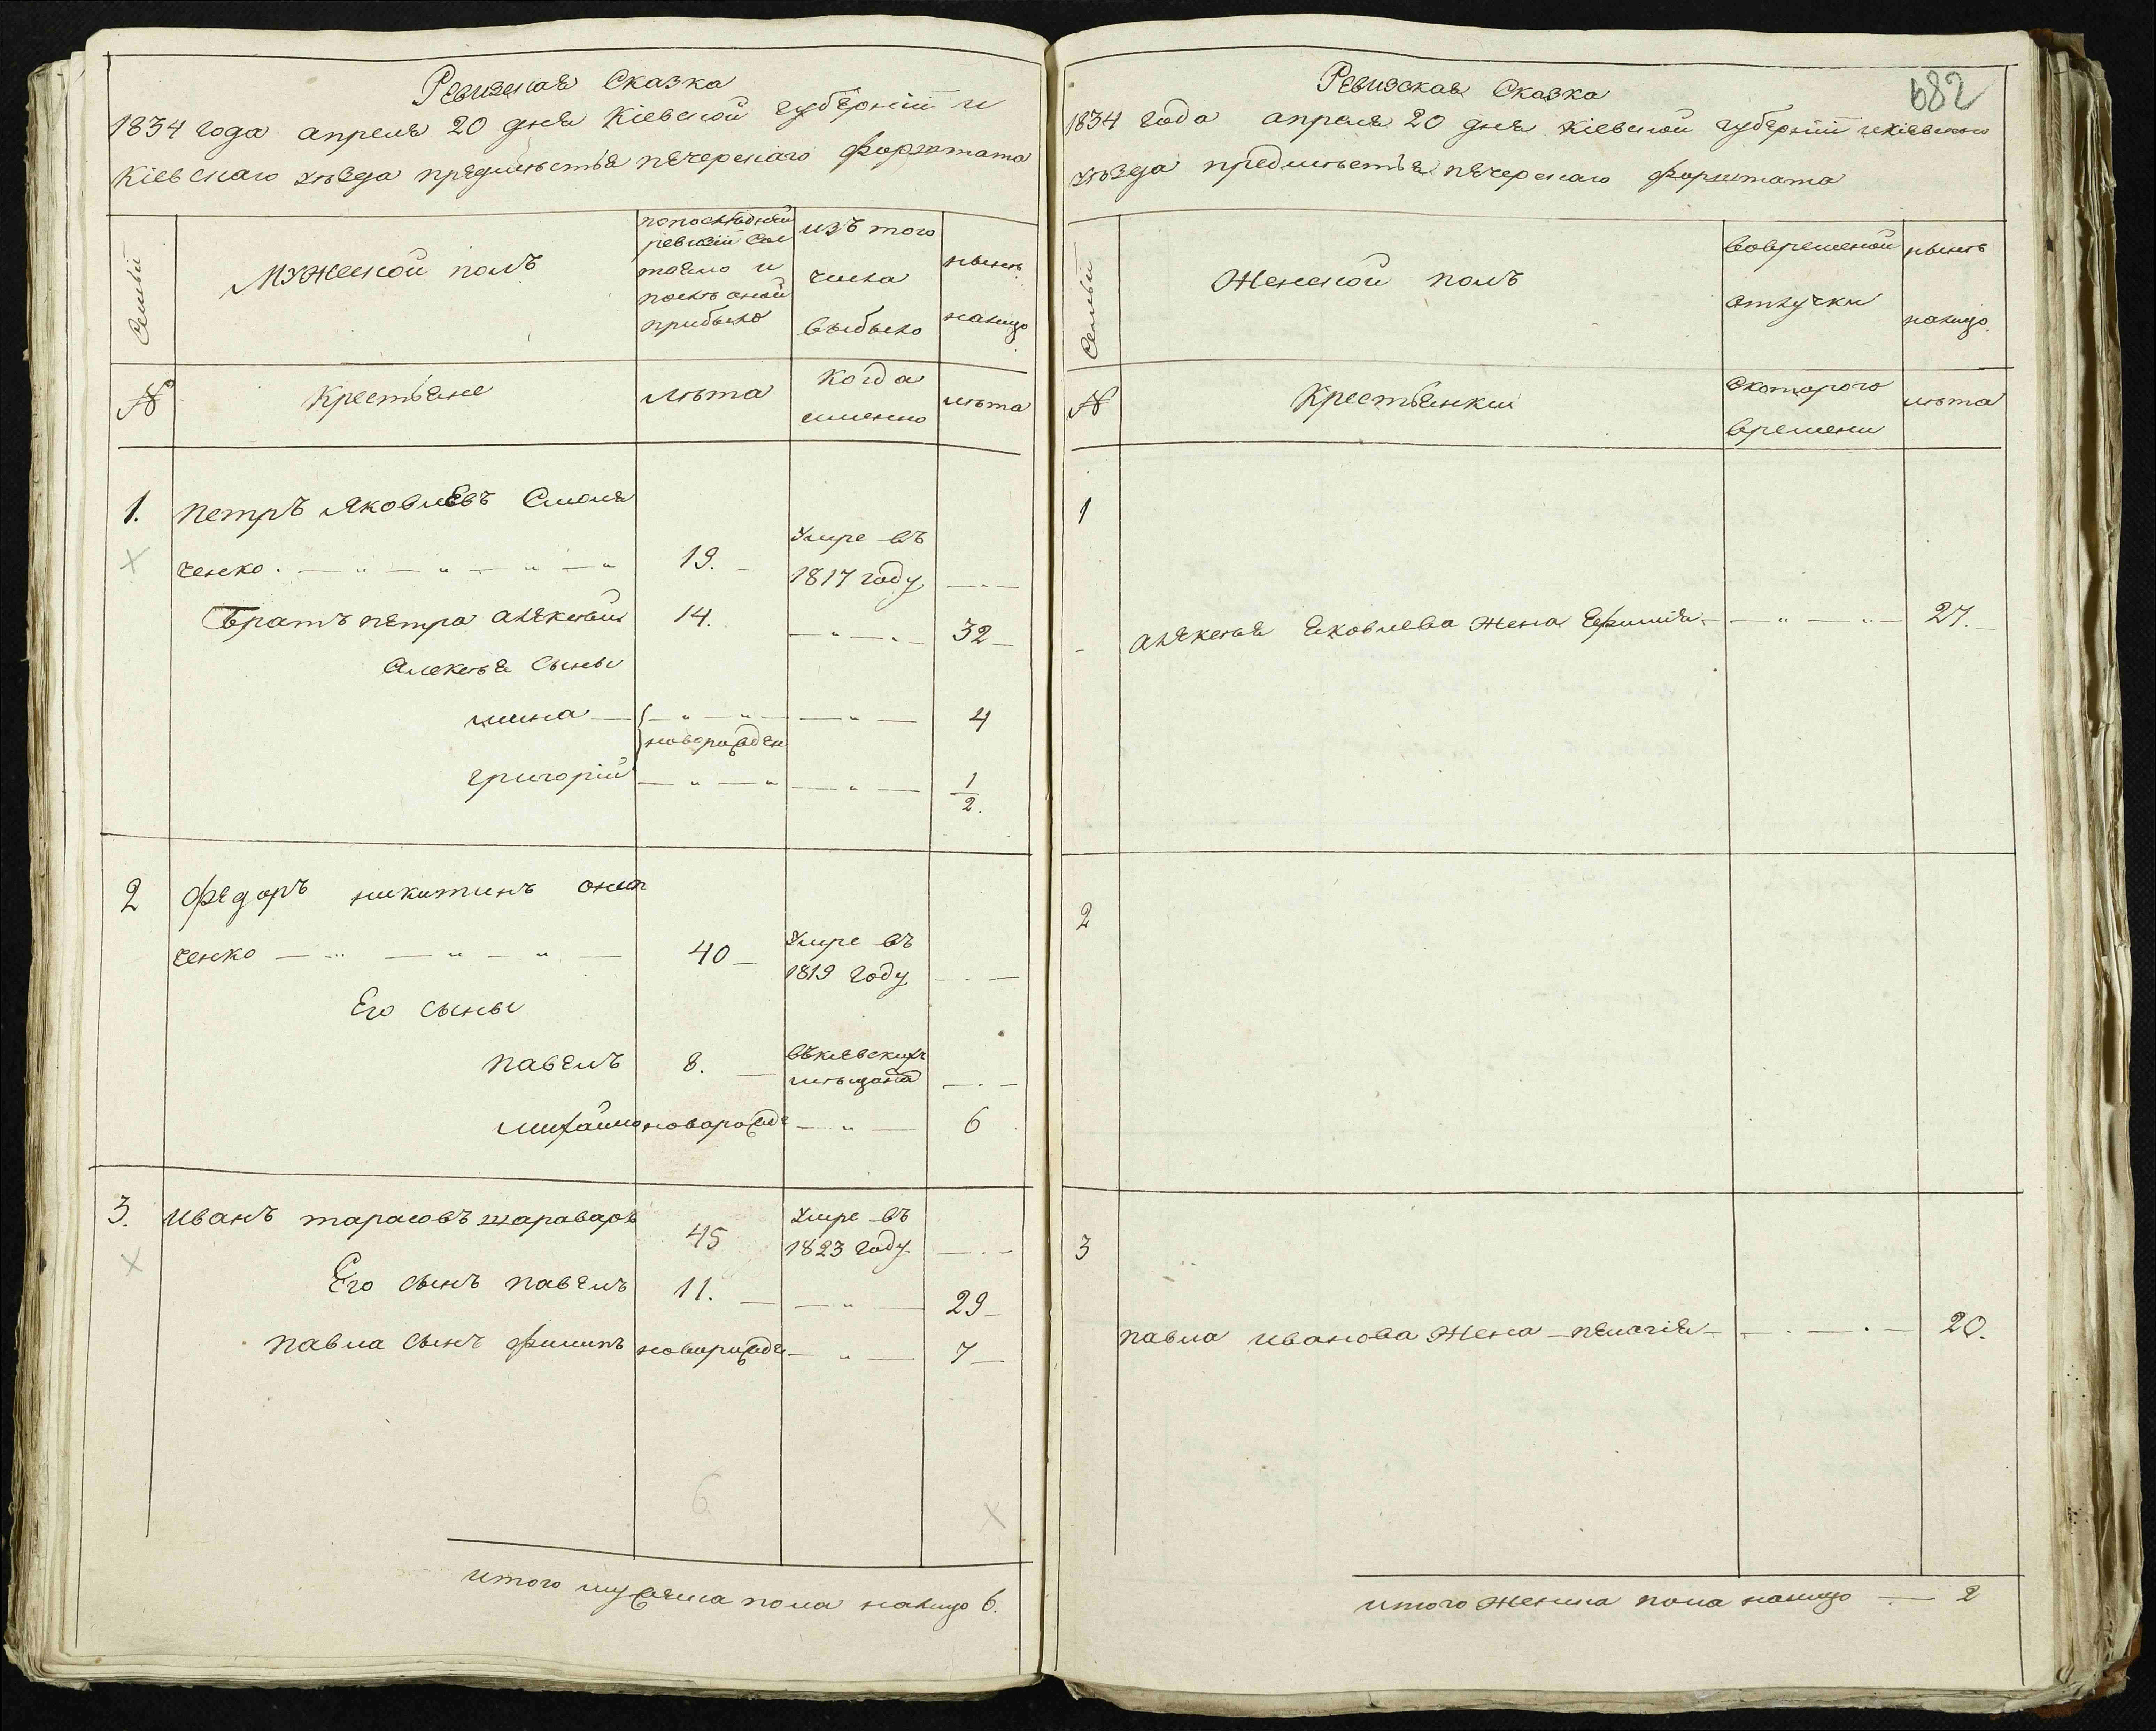 Ревизская Сказка
1834 года апреля 20 дня Кіевской губерніи и
Кіевскаго уѣзда предмѣстья печерскаго форштата
Семьи
Мужеской полъ
попослѣдней
ревизіи сос
тояло и
послѣ оной
прибыло
изъ того
числа
выбыло
нынѣ
налицо
№
Крестьяне
лѣта
Когда
именно
лѣта
1. петръ яковлевъ Симоня
ченко 19. Умре въ
1817 году
Братъ петра алексѣй 14. 32
Алексѣя Сыны
мина 4
новорожден
григорій 1/2.
2 федоръ никитинъ онис
ченко 40 Умре въ
1819 году
Его Сыны
павелъ 8. въкіевскихъ
мѣщанъ
михайло новорожде 6
3. иванъ тарасовъ шараваръ 45 Умре въ
1823 году
Его сынъ павелъ 11. 29
павла сынъ филипъ новорожде 7
6
итого мужеска пола налицо 6.
682
Ревизская Сказка
1834 года апреля 20 дня Кіевской губерніи икіевскаго
уѣзда предмѣстья печерскаго форштата
Семьи
Женской полъ
вовременой
отлучки
нынѣ
налицо
№
Крестьянки
скоторого
времени
лѣта
1
алексѣя яковлева жена Ефимія 27.
2
3
павла иванова жена пелагія 20.
итого женска пола налицо 2